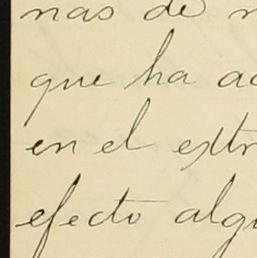 nas de
que ha
en el extr
efecto algu